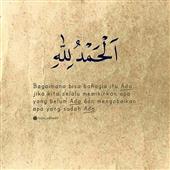 اَلْحَمْدُ لِلّٰهِ
Bagaimana bisa bahagia itu Ada
jika kita selalu memikirkan apa
yang belum Ada dan mengabaikan
apa yang sudah Ada.